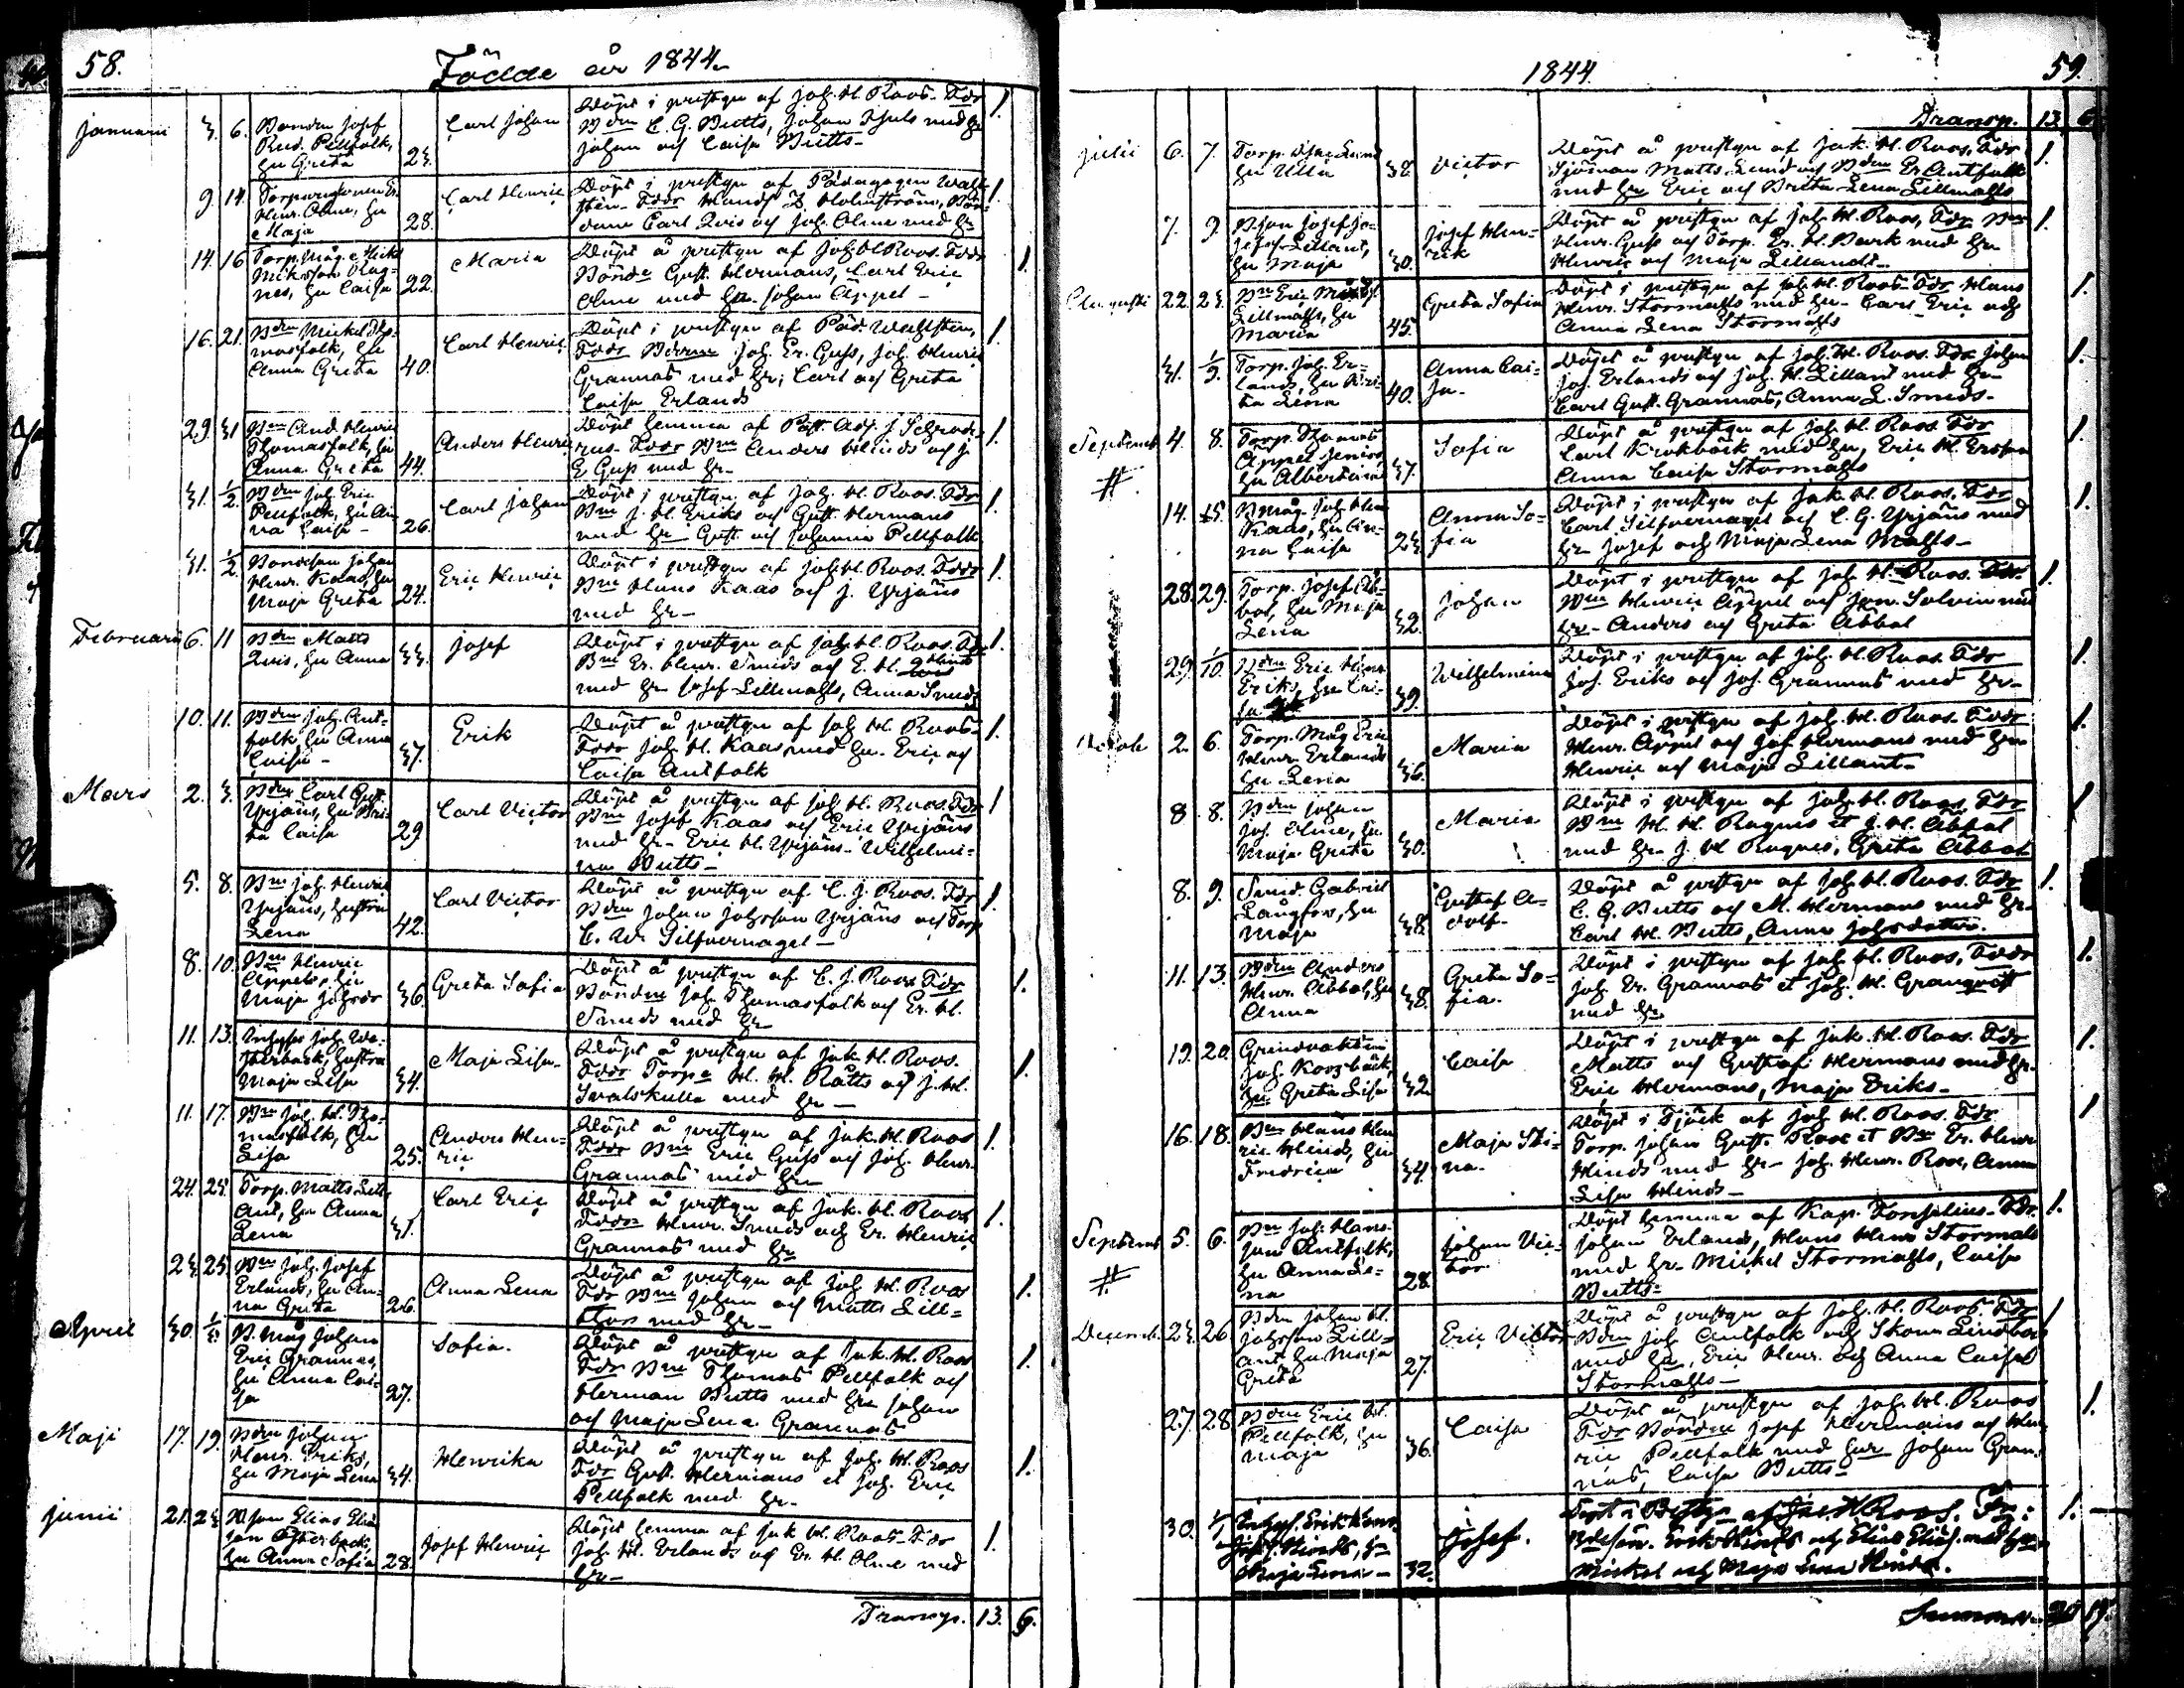 58.
Födde år 1844.
Januarii 3. 6. Bonden Josef
Pellfolk,
hu Greta 23.
Carl Johan
Döpt i prestgn af Joh. H. Roos. Fdr
Bdn C. G. Butts, Johan
Johan och Caisa Butts
9. 14.
Henr. Olme, hu
Maja 28.
Carl Henric
Döpt i prestgn af Pädagogen Wahl-
sten. Fddr Z. Holmström, Bön-
derne Carl Qvis och Joh. Olme med hr
14. 16 Torp. måg
hu Caisa 22.
Maria
Döpt å prestgn af Joh. H Roos. Fddr
Bönde Gust. Hermans, Carl Eric
Olme med hr Johan Appel
16. 21. Bdn Mickel Tho-
masfolk, hu
Anna Greta 40.
Carl Henric
Döpt i prestgn af Päd. Wahlsten,
Fddr Joh. Er. Guss, Joh. Henric
Grannas med hr; Carl och Greta
Caisa Erlands
29. 31 Bdn And. Henric
Thomasfolk, hu
Anna Greta 44.
Anders Henric
Döpt hemma af Past. Adj. J.
Fddr Bdn Anders Hinds och J.
E Guss med hr
31. 1/2. Bdn Joh. Eric
Pellfolk, hu An-
na Caisa 26.
Carl Johan
Döpt i prestgn af Joh. H. Roos. Fddr
Bdn J. H. Eriks och Gust. Hermans
med hr Gust. och Johanna Pellfolk
31. 1/2. Bondeson Johan
Henr. Kaas, hu
Maja Greta 24.
Eric Henric
Döpt i prestgn af Joh. H. Roos. Fddr
Bdn Hans Kaas och J. Yrjäns
med hr
Februarii 6. 11 Bdn Matts
Qvis, hu Anna 33.
Josef
Döpt i prestgn af Joh. H. Roos. Fdr
Bdn Er. Henr. Smeds och E. H. Hinds
med hr Josef Lillmahls, Anna Smeds
10. 11. Bdn Joh. Ant-
folk, hu Anna
Caisa 37.
Erik
Döpt å prestgn af Joh. H. Roos.
Fddr Joh. H. Kaas med hu. Eric och
Caisa Antfolk
Mars 2. 3. Bdn Carl Gust.
Yrjäns, hu Bri-
ta Caisa 29
Carl Victor
Döpt å prestgn af Joh. H. Roos. Fdr
Bdn Josef Kaas och Eric Yrjäns
med hr Eric H. Yrjäns. Wilhelmi-
na Butts
5. 8. Bdn Joh. Henric
Yrjäns, hustru
Lena 42.
Carl Victor
Döpt å prestgn af C. J. Roos. Fdr
Bdn Johan Johsson Yrjäns och Torp
C. Silfvernagel
8. 10. Bdn Henric
Appel, hu
Maja Johsdr 36.
Greta Sofia
Döpt å prestgn af C. J. Roos Fdr
Bönderne Joh. Thomasfolk och Er. H.
Smeds med hr
11. 13. Inhyses Joh.
hustru
Maja Lisa 34.
Maja Lisa
Döpt å prestgn af Jak. H. Roos.
Fddr Torp. H. H. Rätts och J. H.
Svalskulla med hr
11. 17. Bdn Joh. H. Tho-
masfolk, hu
Lisa 25.
Anders Hen-
ric
Döpt å prestgn af Jak. H. Roos
Fddr Bdn Eric Guss och Joh. Henr.
Grannas med hr
24. 25. Torp. Matts Lill-
ant, hu Anna
Lena 31.
Carl Eric
Döpt å prestgn af Jak. H. Roos
Fddr Henr. Smeds och Er. Henric
Grannas med hr
23. 25. Bdn Joh. Josef
Erlands, hu An-
na Greta 26.
Anna Lena
Döpt å prestgn af Joh. H. Roos
Fdr Bdn Johan och Matts Lill-
med hr
April 30. 1/3. B. måg Johan
Eric Grannas,
hu Anna Cai-
sa 27.
Sofia.
Döpt å prestgn af Jak. H. Roos
Fdr Bdn Thomas Pellfolk och
Herman Butts med hr Johan
och Maja Lena Grannas
Maji 17. 19. Bdn Johan
Henr. Eriks,
hu Maja Lena 34.
Henrika
Döpt å prestgn af Joh. H. Roos
Fdr Gust. Hermans et Joh. Eric
Pellfolk med hr
Junii 21. 23 Bson Elias Elias-
son Österback,
hu Anna Sofia 28
Josef Henric
Döpt hemma af Jak. H. Roos. Fdr
Joh. H. Erlands och Er. H. Olme med
hr
Transp. 13. 6.
1844.
59.
Transp. 13. 6.
Julii 6. 7. Torp. Lund
hu Ulla 38.
Victor
Döpt å prestgn af Jak. H. Roos. Fdr
Sjöman Matts Lund och Bdn Er Antfolk
med hr Eric och Brita Lena Lillmahls
7. 9. Bson Josef Jo-
sefss. Lillant,
hu Maja 30.
Josef Hen-
rik
Döpt å prestgn af Joh. H. Roos, Fdr Bdn
Henr. Guss och Torp. Er. H. Bark med hr
Henric och Maja Lillants
Augusti 22. 23. Bdn Eric
Lillmahls, hu
Maria 45.
Greta Sofia
Döpt i prestgn af Joh. H. Roos. Fdr Hans
Henr. Stormahls med hr. Carl Eric och
Anna Lena Stormahls
31. 1/9. Torp. Joh. Er-
lands, hu Bri-
ta Lena 40.
Anna Cai-
sa.
Döpt å prestgn af Joh. H. Roos. Fdr Johan
Joh. Erlands och Joh. H. Lillant med hr
Carl Gust. Grannas, Anna L. Smeds
Septemb. 4. 8. Torp. Thomas
Appel senior
hu Albertina 37.
Sofia
Döpt å prestgn af Joh. H. Roos Fdr
Carl Krokbäck med hr, Eric H. Ersson
Anna Caisa Stormahls
#
14. 15. B måg Joh Hen
Kaas, hu An-
na Caisa 23.
Anna So-
fia
Döpt i prestgn af Jak. H. Roos. Fdr
Carl Silfvernagel och C. G. Yrjäns med
hr Josef och Maja Lena Mahls
28. 29. Torp. Josef Ab-
bal, hu Maja
Lena 32.
Johan
Döpt i prestgn af Joh. H. Roos. Fdr
Bdn Henric Appel och Jon. Solvin med
hr Anders och Greta Abbal
29. 1/10. Bdn Eric Henr.
Eriks, hu Cai-
sa 39.
Wilhelmina
Döpt i prestgn af Joh. H. Roos. Fdr
Joh. Eriks och Joh. Grannas med hr
Octob. 2. 6. Torp. Måg Eric
Henr. Erlands
hu Lena 36.
Maria
Döpt i prestgn af Joh. H. Roos. Fddr
Henr. Appel och Joh Hermans med hr
Henric och Maja Lillant
8. 8. Bdn Johan
Joh. Olme, hu
Maja Greta 30.
Maria
Döpt i prestgn af Joh. H. Roos Fdr
Bdn H. H. Ragnes et J. H. Abbal
med hr J. H. Ragnes, Greta Abbal
8. 9. Smed. Gabriel
Långfors, hu
Maja 38.
Gustaf A-
dolf
Döpt å prestgn af Joh. H. Roos. Fdr
C. G. Butts och M. Hermans med hr
Carl H. Butts, Anna Johsdotter.
11. 13. Bdn Anders
Henr. Abbal, hu
Anna 38.
Greta So-
fia.
Döpt i prestgn af Joh. H. Roos, Fddr
Joh. Er. Grannas et Joh. H. Granqvist
med hr
19. 20. Grindvakten
Joh. Korsbäck,
hu Greta Lisa 32
Caisa
Döpt i prestgn af Jak. H. Roos. Fdr
Matts och Gustaf Hermans med hr.
Eric Hermans, Maja Eriks
16. 18. Bdn Hans Hen
ric Hinds, hu
Fredrica 34.
Maja Sti-
na.
Döpt i Tjöck af Joh H. Roos. Fdr
Torp. Johan Gust. Rose et Bdn Er. Henr
Hinds med hr Joh. Henr. Rose, Anna
Lisa Hinds
Septemb. 5. 6. Bdn Joh. Hans-
son Antfolk,
hu Anna Le-
na 28.
Johan Vic-
tor
Döpt hemma af Kap. Forselius. Fdr.
Johan Erlands, Hans Henr Stormahls
med hr Mickel Stormahls, Caisa
Butts
#
Decemb. 23. 26 Bdn Johan H.
Johsson Lill-
ant hu Maja
Greta 27.
Eric Victor
Döpt å prestgn af Joh. H. Roos. Fdr
Bdn Joh Antfolk och Skom Lindbäck
med hr, Eric Henr. och Anna Caisa
Stormahls
27. 28. Bdn Eric H.
Pellfolk, hu
Maja 36.
Caisa
Döpt å prestgn af Joh. H. Roos
Fdr Bönderne Josef Hermans och Hen-
ric Pellfolk med hr Johan Gran-
nas, Caisa Butts
30. 1/1 Inhys. Erik Henr.
Josef. Hinds, hu
Maja Lena 32.
Josef.
Döpt i Prstgn af Jac. H Roos. Fr:
Erik Hinds och Elias Elias. med hr
Mickel och Maja Lena Hinds.
Summa 20 19.